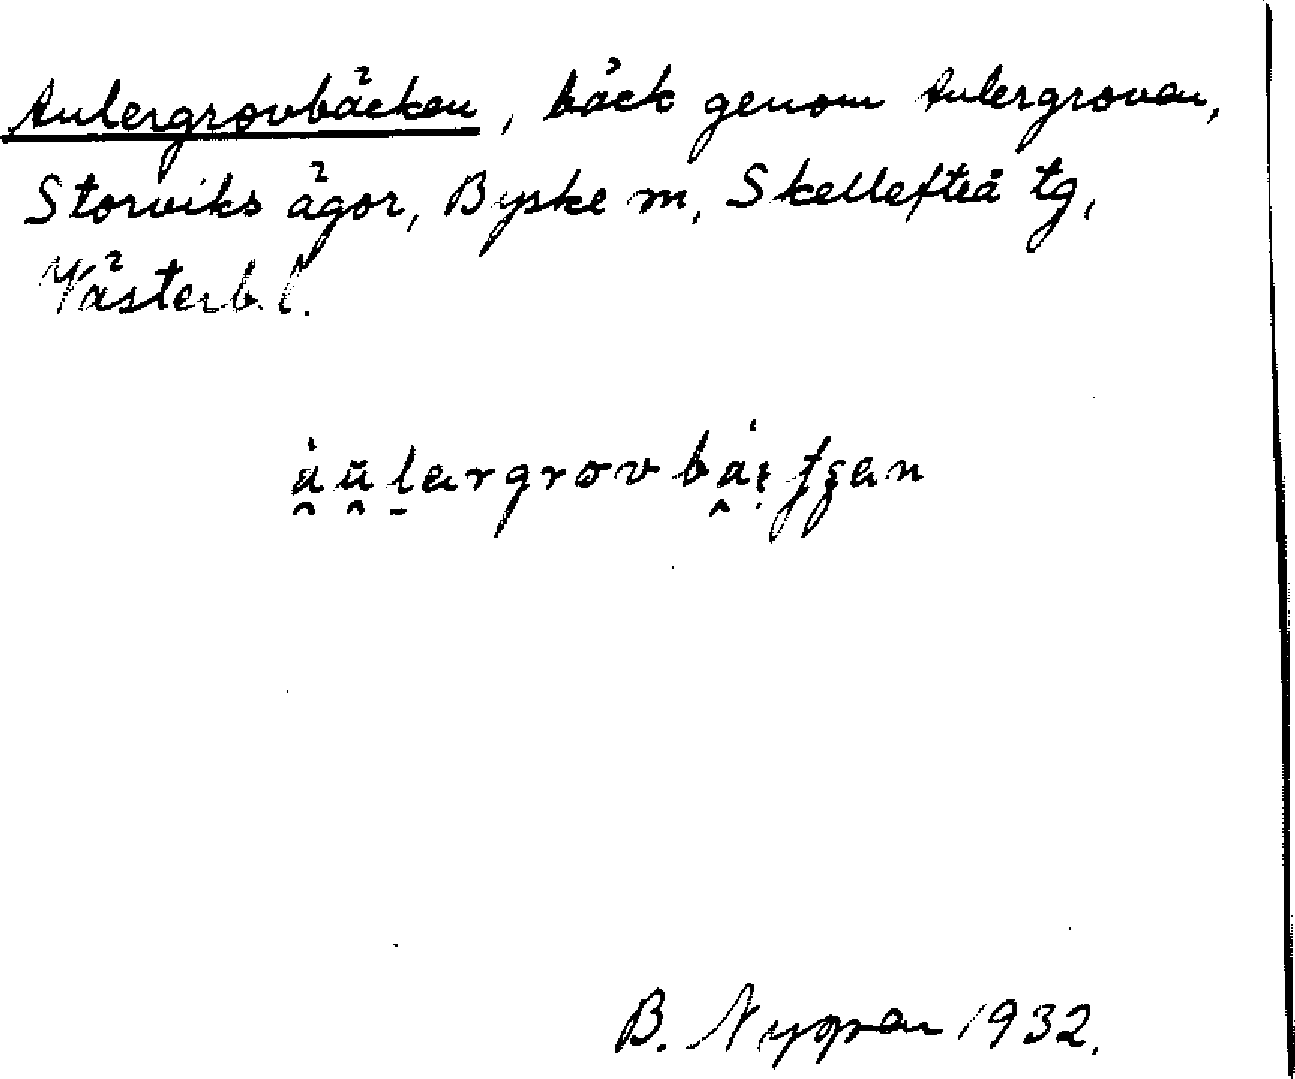 Aulergrovbäcken, bäck genom Aulergrovan,
Storviks ägor, Byske sn, Skellefteå tg,
Västerb. l.
B. Nygren 1932.